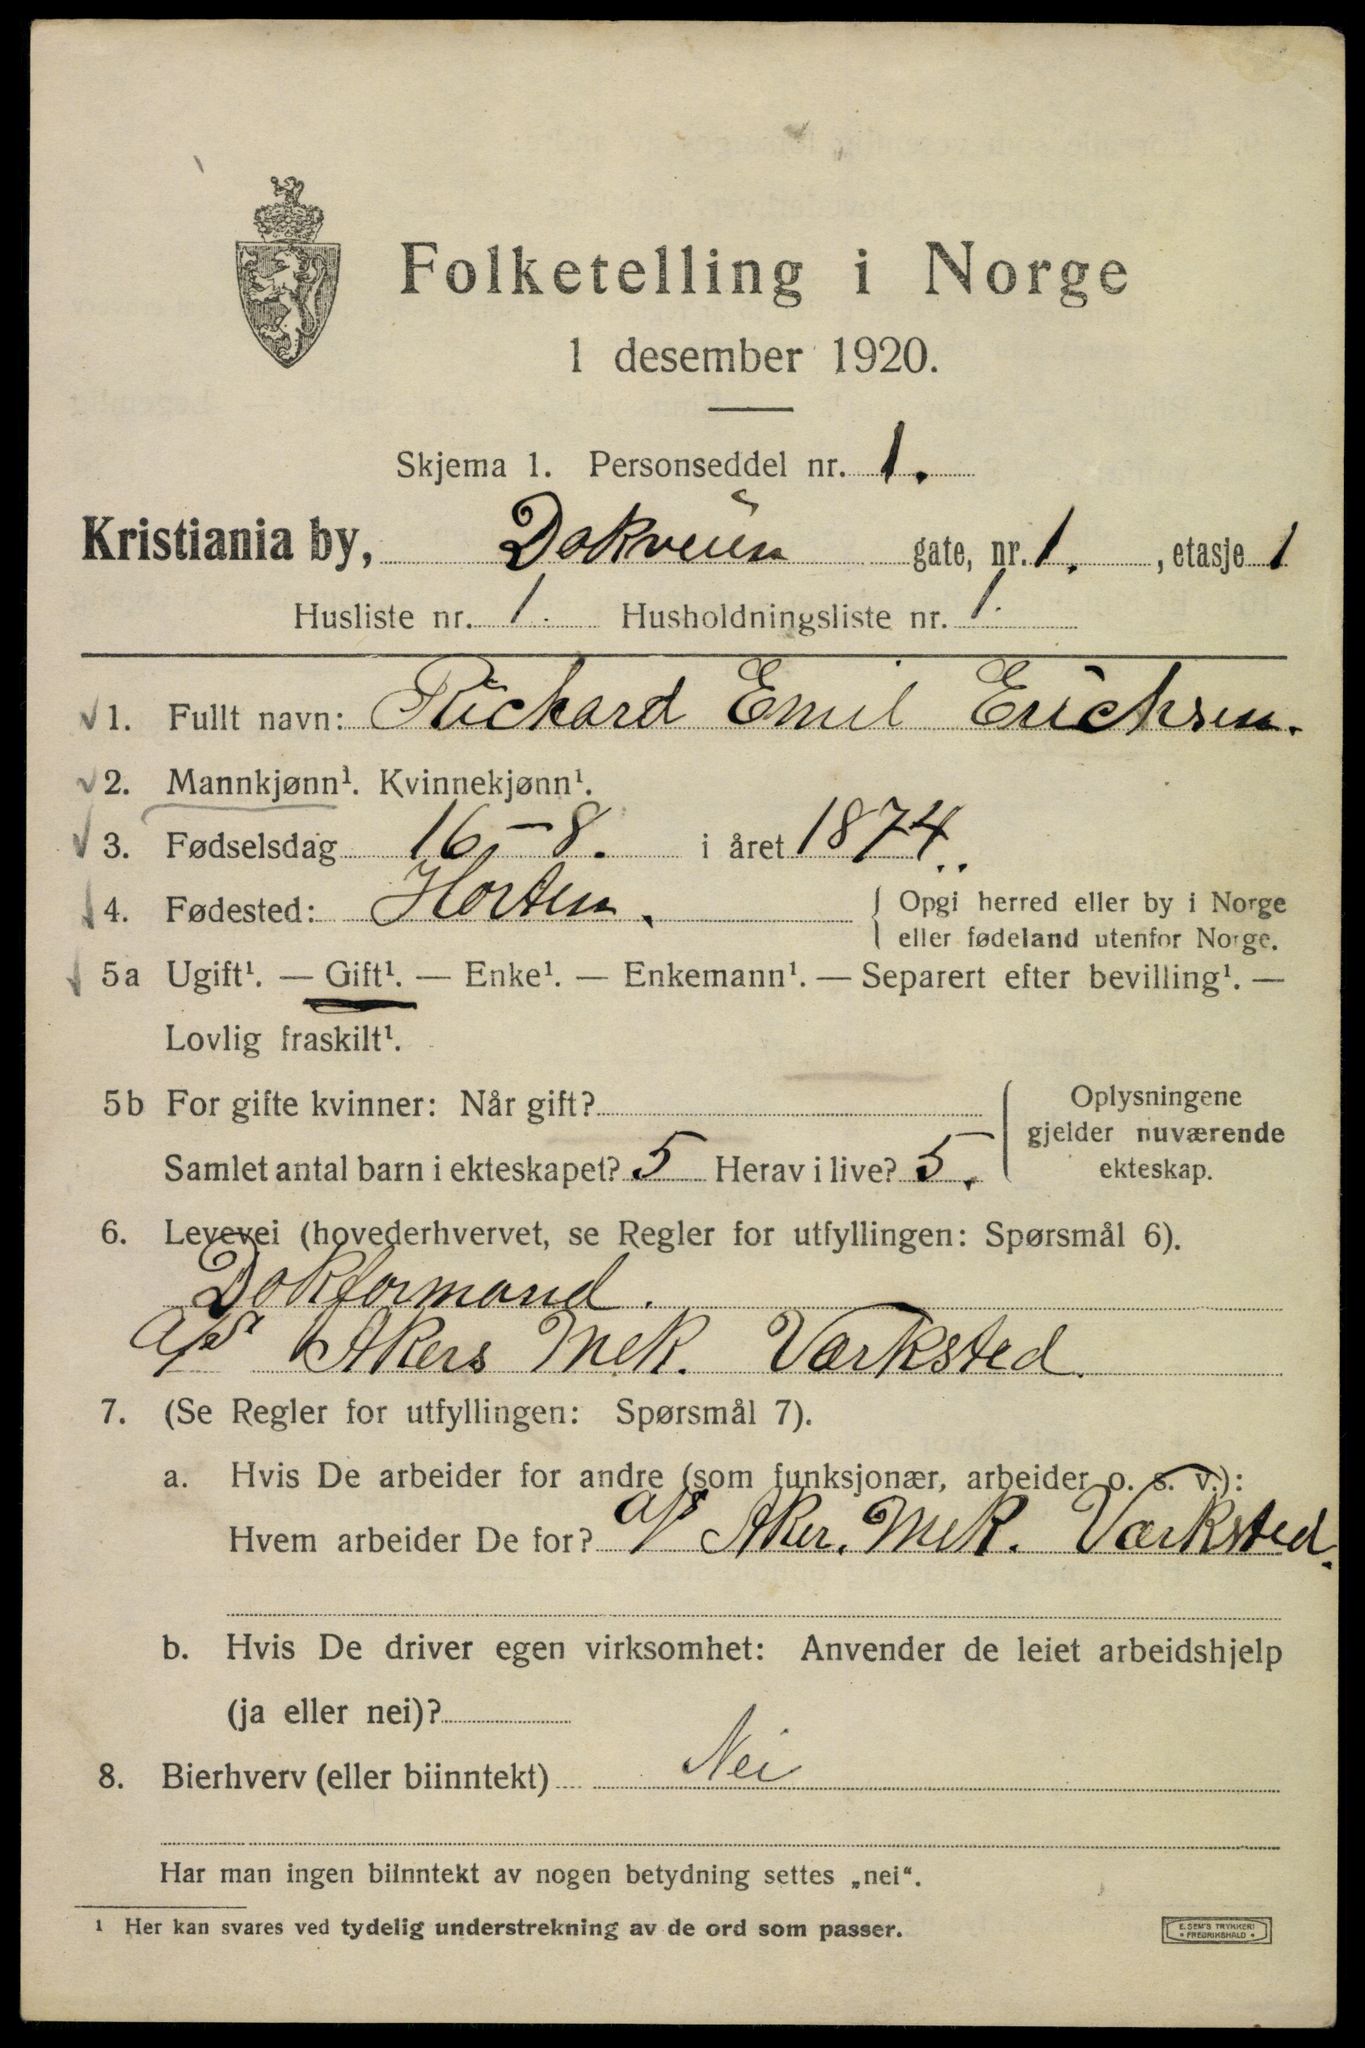 Folketelling i Norge
1 desember 1920.
Skjema 1. Personseddel nr. 1.
Kristiania by, Dokveien gate, nr. 1. , etasje 1
Husliste nr. 1. Husholdningsliste nr. 1.
1. Fullt navn: Richard Emil Erichsen.
2. Mannkjønn¹. Kvinnekjønn¹.
3. Fødselsdag 16-8. i året 1874.
4. Fødested: Horten. Opgi herred eller by i Norge
eller fødeland utenfor Norge.
5a Ugift¹. — Gift¹. — Enke¹. — Enkemann¹. — Separert efter bevilling¹. —
Lovlig fraskilt¹.
5b For gifte kvinner: Når gift?
Oplysningene
gjelder nuværende
ekteskap.
Samlet antal barn i ekteskapet? 5 Herav i live? 5.
6. Levevei (hovederhvervet, se Regler for utfyllingen: Spørsmål 6).
Dokformand.
A/S Akers Mek. Værksted.
7. (Se Regler for utfyllingen: Spørsmål 7).
a. Hvis De arbeider for andre (som funksjonær, arbeider o. s. v.):
Hvem arbeider De for? A/S Aker. Mek. Værksted.
b. Hvis De driver egen virksomhet: Anvender de leiet arbeidshjelp
(ja eller nei)?
8. Bierhverv (eller biinntekt) Nei
Har man ingen biinntekt av nogen betydning settes „nei“.
¹ Her kan svares ved tydelig understrekning av de ord som passer.
E. SEM'S TRYKKERI
• FREDRIKSHALD •